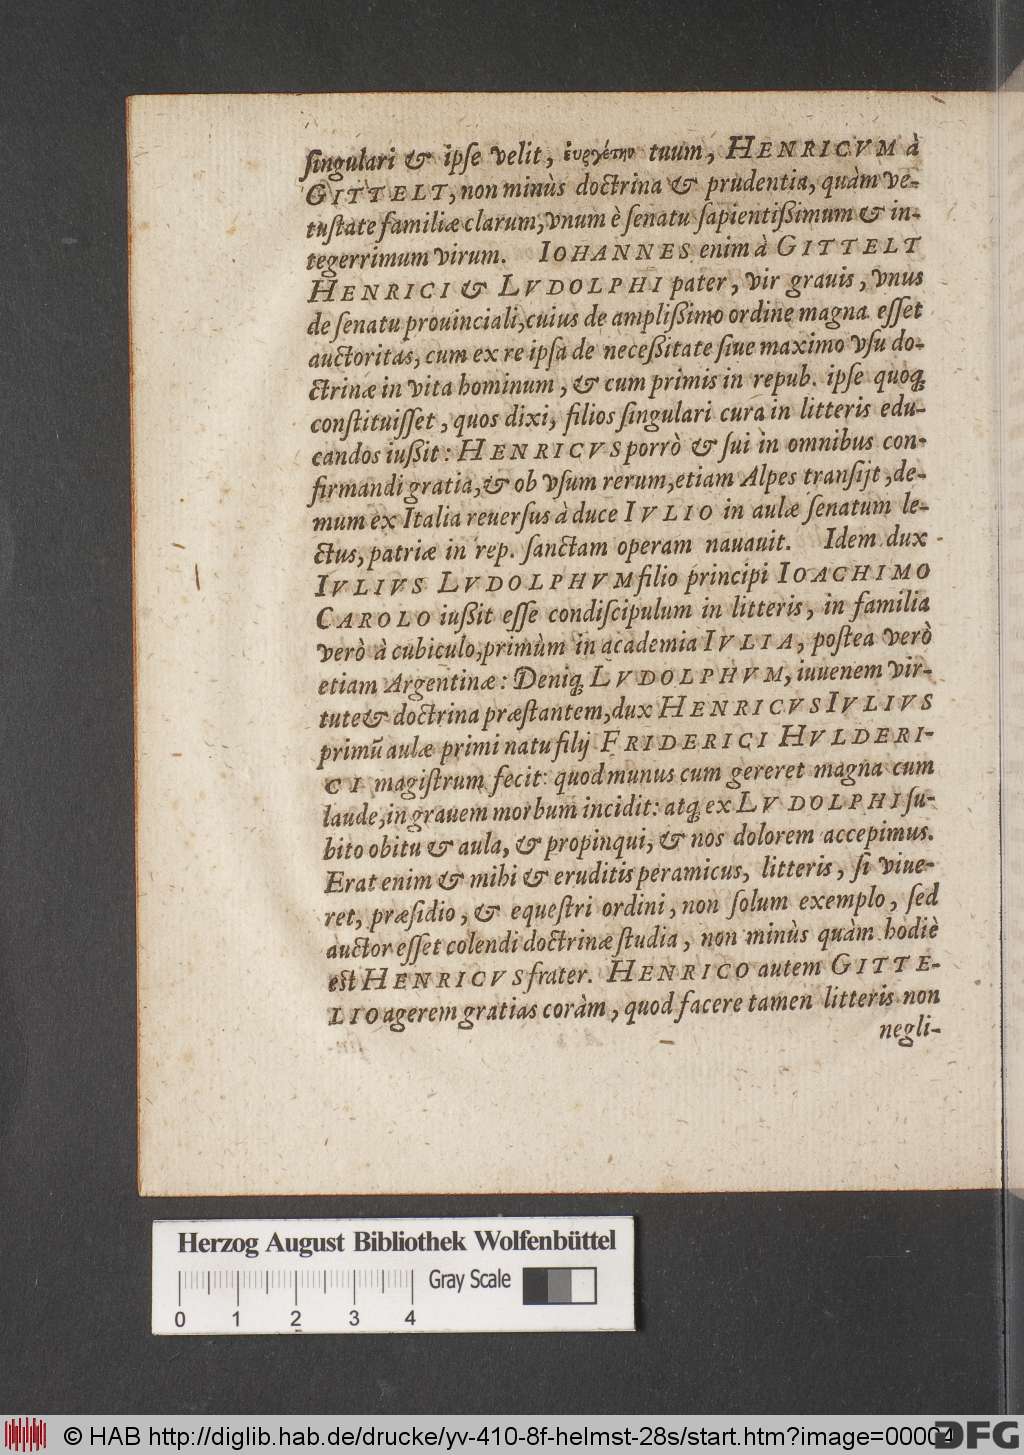 ſingulari & ipſe velit, ἐυεργέτην tuum, HENRICVM à
GITTELT, non minùs doctrina & prudentia, quàm ve-
tuſtate familiæ clarum, vnum è ſenatu ſapientißimum & in-
tegerrimum virum. IOHANNES enim à GITTELT
HENRICI & LVDOLPHI pater, vir grauis, vnus
de ſenatu prouinciali, cuius de amplißimo ordine magna eſſet
auctoritas, cum ex re ipſa de neceßitate ſiue maximo vſu do-
ctrinæ in vita hominum, & cum primis in repub. ipſe quoq́;
conſtituiſſet, quos dixi, filios ſingulari cura in litteris edu-
candos iußit: HENRICVS porrò & ſui in omnibus con-
firmandi gratia, & ob vſum rerum, etiam Alpes tranſijt, de-
mum ex Italia reuerſus à duce IVLIO in aulæ ſenatum le-
ctus, patriæ in rep. ſanctam operam nauauit. Idem dux
IVLIVS LVDOLPHVM filio principi IOACHIMO
CAROLO iußit eſſe condiſcipulum in litteris, in familia
verò à cubiculo, primùm in academia IVLIA, poſtea verò
etiam Argentinæ: Deniq́; LVDOLPHVM, iuuenem vir-
tute & doctrina præſtantem, dux HENRICVS IVLIVS
primū aulæ primi natu filij FRIDERICI HVLDERI-
CI magiſtrum fecit: quod munus cum gereret magna cum
laude, in grauem morbum incidit: atq́; ex LVDOLPHI ſu-
bito obitu & aula, & propinqui, & nos dolorem accepimus.
Erat enim & mihi & eruditis peramicus, litteris, ſi viue-
ret, præſidio, & equeſtri ordini, non ſolum exemplo, ſed
auctor eſſet colendi doctrinæ ſtudia, non minùs quàm hodiè
eſt HENRICVS frater. HENRICO autem GITTE-
LIO agerem gratias coràm, quod facere tamen litteris non
negli-
Herzog August Bibliothek Wolfenbüttel
Gray Scale
0 1 2 3 4
© HAB http://diglib.hab.de/drucke/yv-410-8f-helmst-28s/start.htm?image=00004
DFG